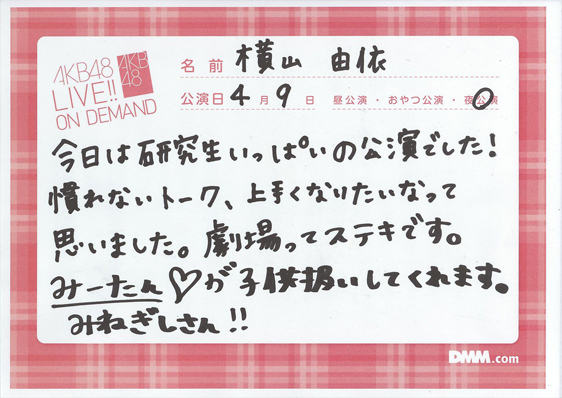 AKB48
LIVE!!
ON DEMAND
AKB
48
名前 横山 由依
公演日 4月9日 昼公演・おやつ公演・夜公演
今日は研究生いっぱいの公演でした!
慣れないトーク、上手くなりたいなって
思いました。劇場ってステキです。
みーたん♡が子供扱いしてくれます。
みねぎしさん!!
DMM.com